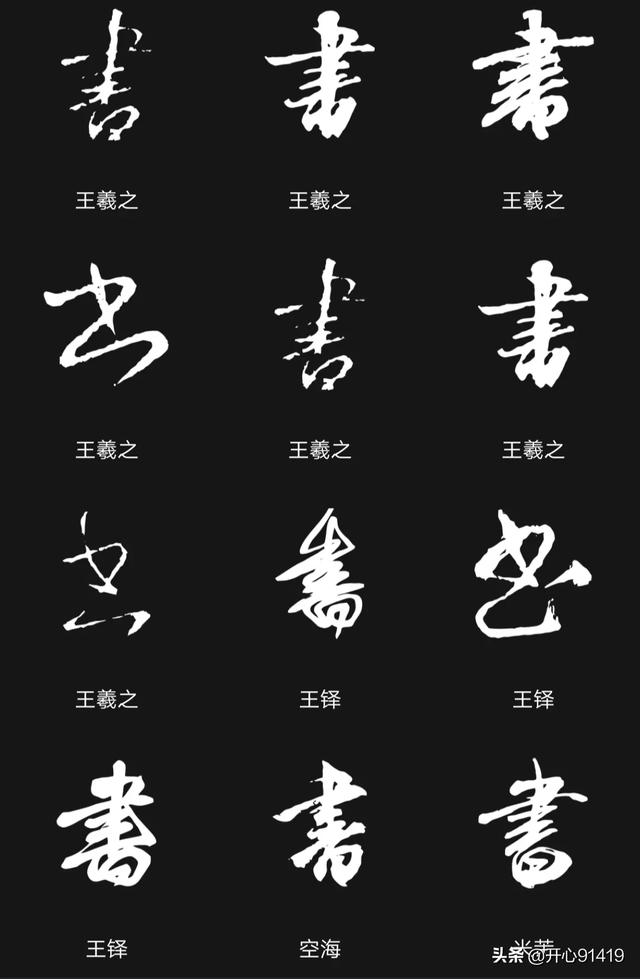 書 書 書
王羲之 王羲之 王羲之
書 書 書
王羲之 王羲之 王羲之
書 書 書
王羲之 王铎 王铎
書 書 書
王铎 空海 米芾
头条 @开心91419